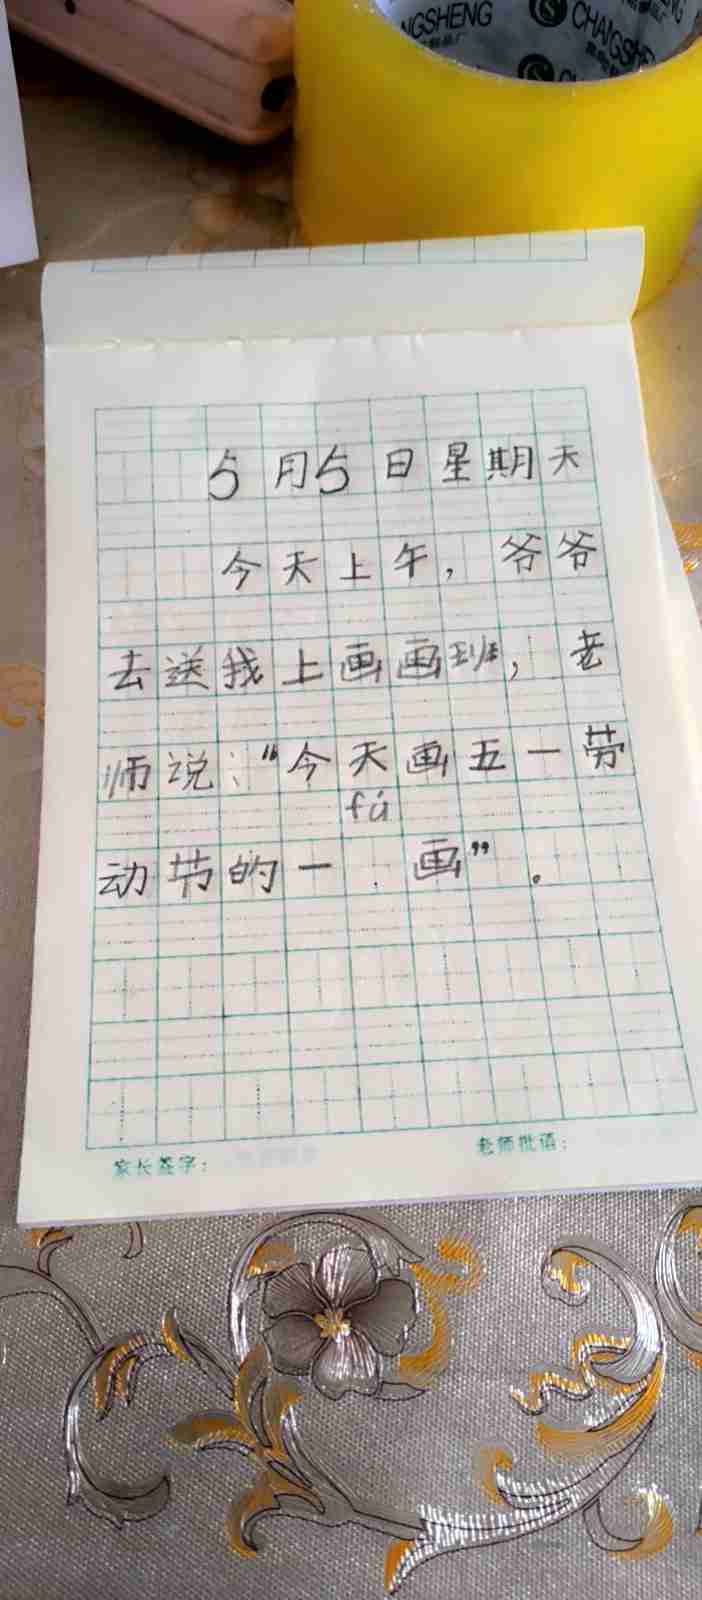 NGSHENG
CHANGSHENG
5月5日星期天
今天上午，爷爷
去送我上画画班，老
师说："今天画五一劳
fú
动节的一.画"。
家长签字：
老师批语：